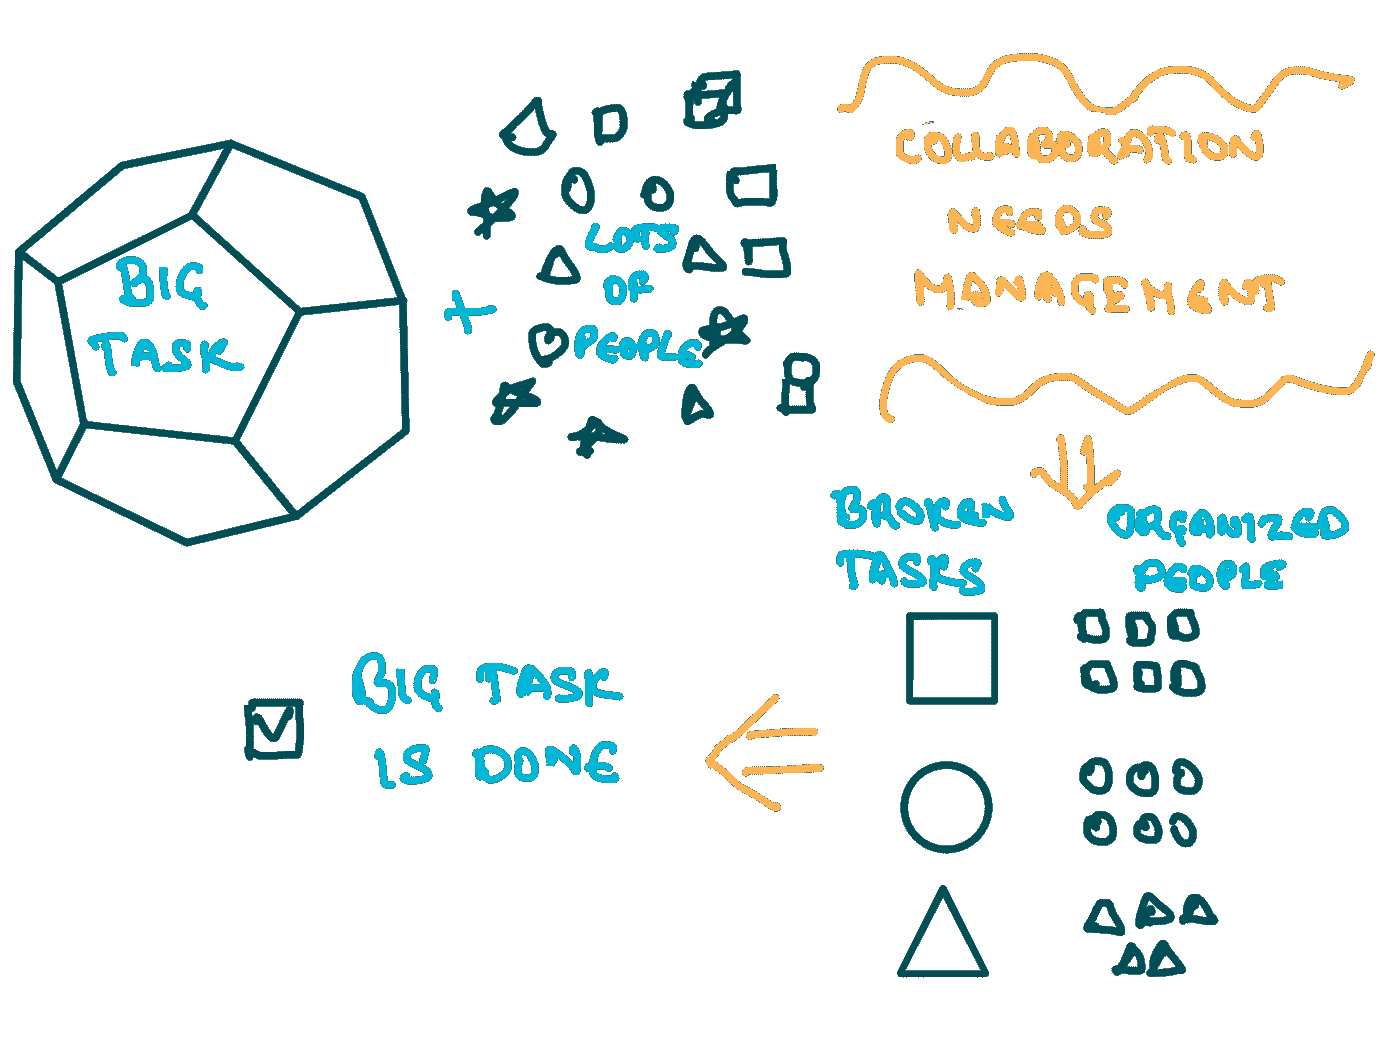 BIG
TASK
+
LOTS
OF
PEOPLE
COLLABORATION
NEEDS
MANAGEMENT
BROKEN
TASKS
ORGANIZED
PEOPLE
BIG TASK
IS DONE